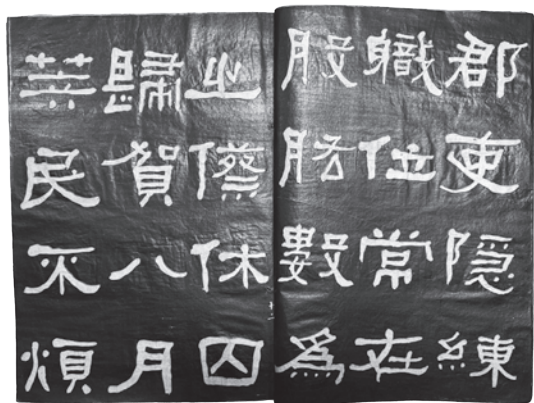 郡吏隱練
職位常在
股肱數為
之傺休囚
歸賀八月
筭民不煩